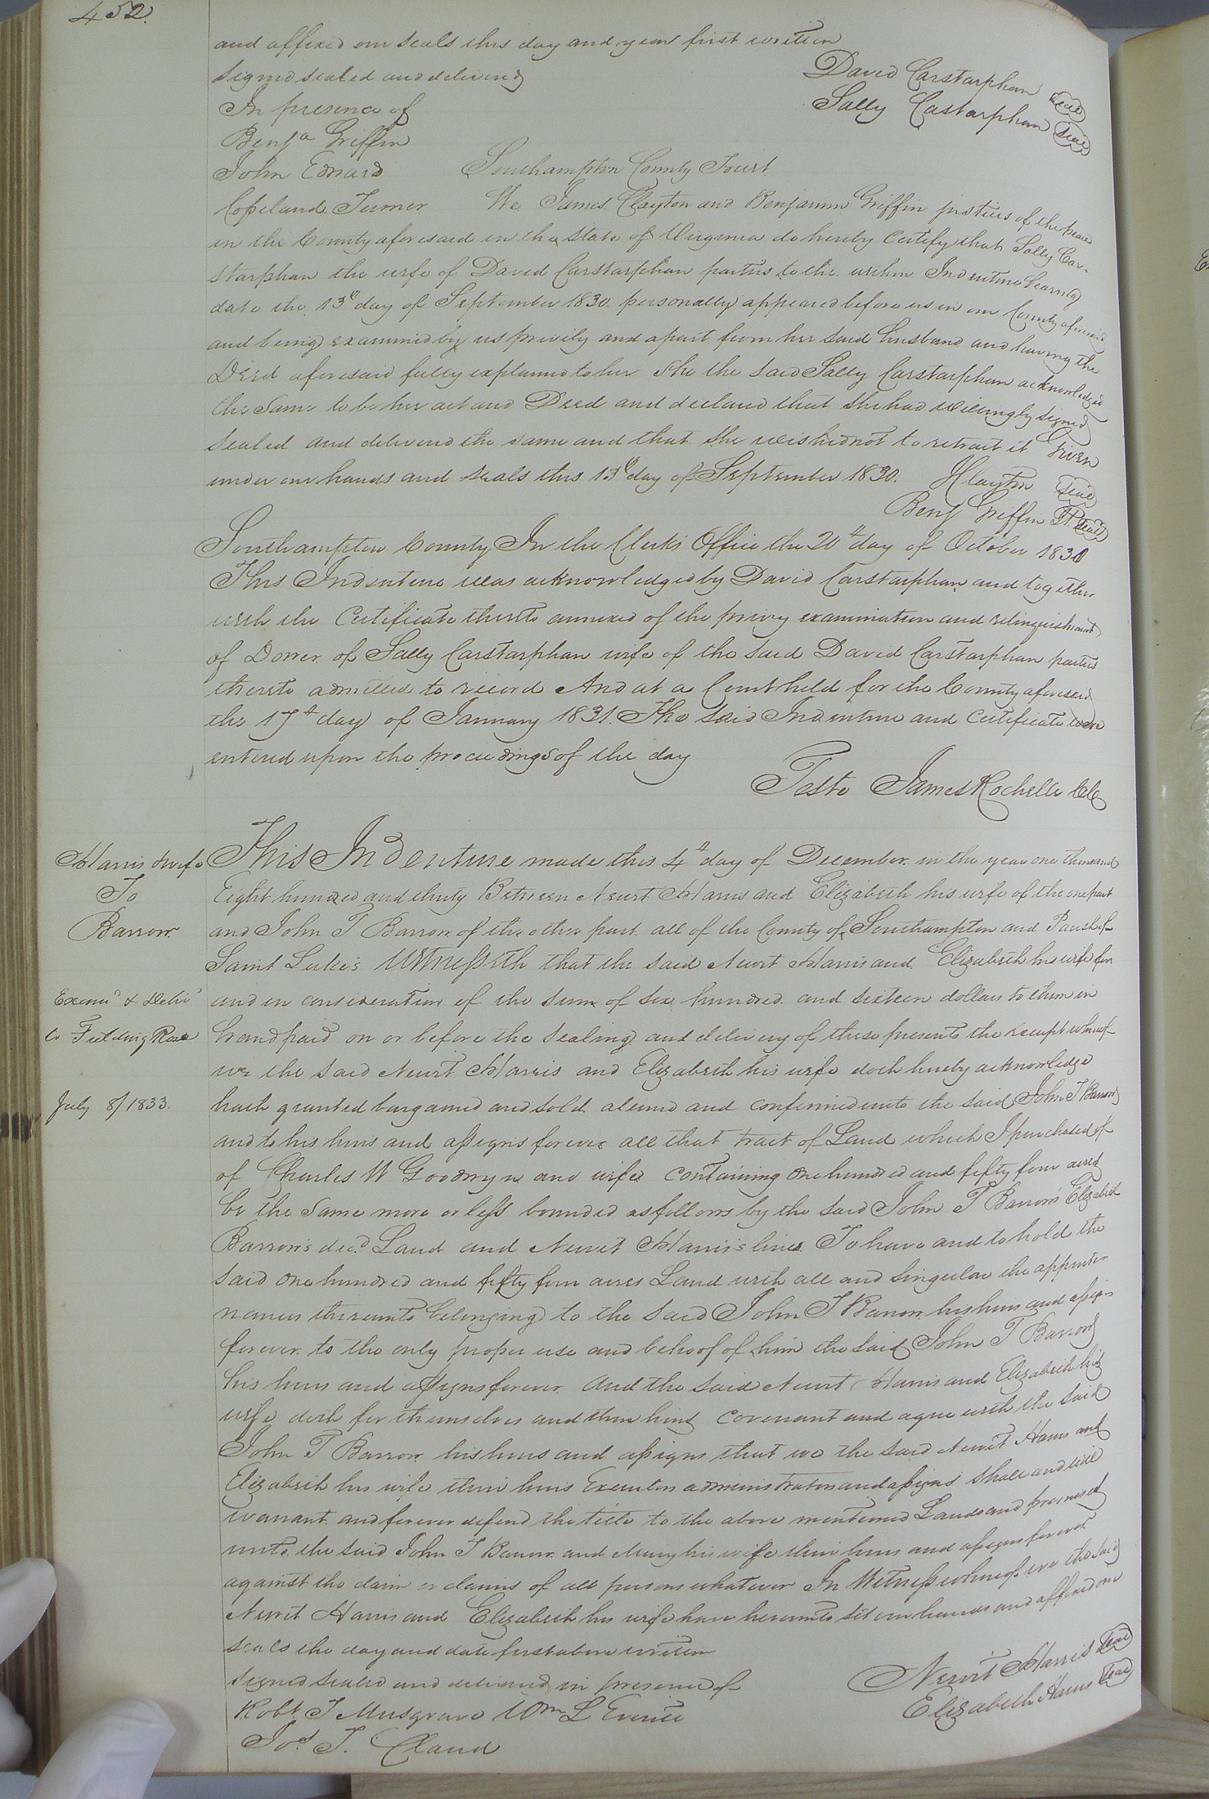 452.
and affixed our seals this day and year first written
signed sealed and delivered
David Carstarphen seal
In presence of
Sally Castarphen seal
Benja Griffin
John Edward
Southampton County Tourt
Copeland Turner
We James Clayton and Benjamin Griffin justices of the peace
in the County aforesaid in the State of Virginia do hereby Certify that Sally Car-
starphan the wife of David Carstarphan parties to the within Indenture bearing
date the 13th day of September 1830. personally appeared before us in our County aforesaid
and being examined by us privily and apart from her said husband and having the
Deed aforesaid fully explained to her She the said Sally Carstarphan acknowledged
the same to be her act and Deed and declared that she had willingly signed
sealed and delivered the same and that she wished not to retract it Given
under our hands and seals this 13th day of September 1830.
Clayton seal
Benj Griffin JP seal
Southampton County In the Clerks Office the 20th day of October 1830
This Indenture was acknowledged by David Carstarphan and together
with the Certificate thereto annexed of the privy examination and relinquishment
of Dower of Sally Carstarphan wife of the said David Carstarphan parties
thereto admitted to record And at a Court held for the County aforesaid
the 17th day of January 1831. The said Indenture and Certificate were
entered upon the proceedings of the day
Teste James Rochelle Clk
Harris & wife
To
Barrow
Examd & Delivd
to Fielding Rose
July 8/1833.
This Indenture made this 4th day of December in the year one thousand
Eight hundred and thirty Between Newit Harris and Elizabeth his wife of the one part
and John T Barrow of the other part all of the County of Southampton and Parish of
Saint Luke's Witnesseth that the said Newit Harris and Elizabeth his wife for
and in consideration of the sum of six hundred and sixteen dollars to them in
hand paid on or before the sealing and delivery of these presents the receipt whereof
we the said Newit Harris and Elizabeth his wife doth hereby acknowledge
hath granted bargained and sold aliened and confirmed unto the said John T Barrow
and to his heirs and assigns forever all that tract of Land which I purchased of
of Charles W Goodwyn and wife containing one hundred and fifty four acres
be the same more or less bounded as follows by the said John T Barrow's Elizabeth
Barron's decd Land and Newit Harris's lines To have and to hold the
said one hundred and fifty four acres Land with all and singular the appurte-
nances thereunto belonging to the said John T Barrow his heirs and assigns
forever to the only proper use and behoof of him the said John T Barrow
his heirs and assigns forever And the said Newit Harris and Elizabeth his
wife doth for themselves and their heirs covenant and agree with the said
John T Barrow his heirs and assigns that we the said Newit Harris and
Elizabeth his wife their heirs Executors administrators and assigns shall and will
warrant and forever defend the title to the above mentioned Lands and premises
unto the said John T Barrow and Mary his wife their heirs and assigns forever
against the claim or claims of all persons whatever In Witness whereof we the said
Newit Harris and Elizabeth his wife have hereunto set our hands and affixed our
seals the day and date first above written
signed sealed and delivered in presence of
Newit Harris seal
Robt T Musgrave Wm L Everitt
Elizabeth Harris seal
Jos T. Claud